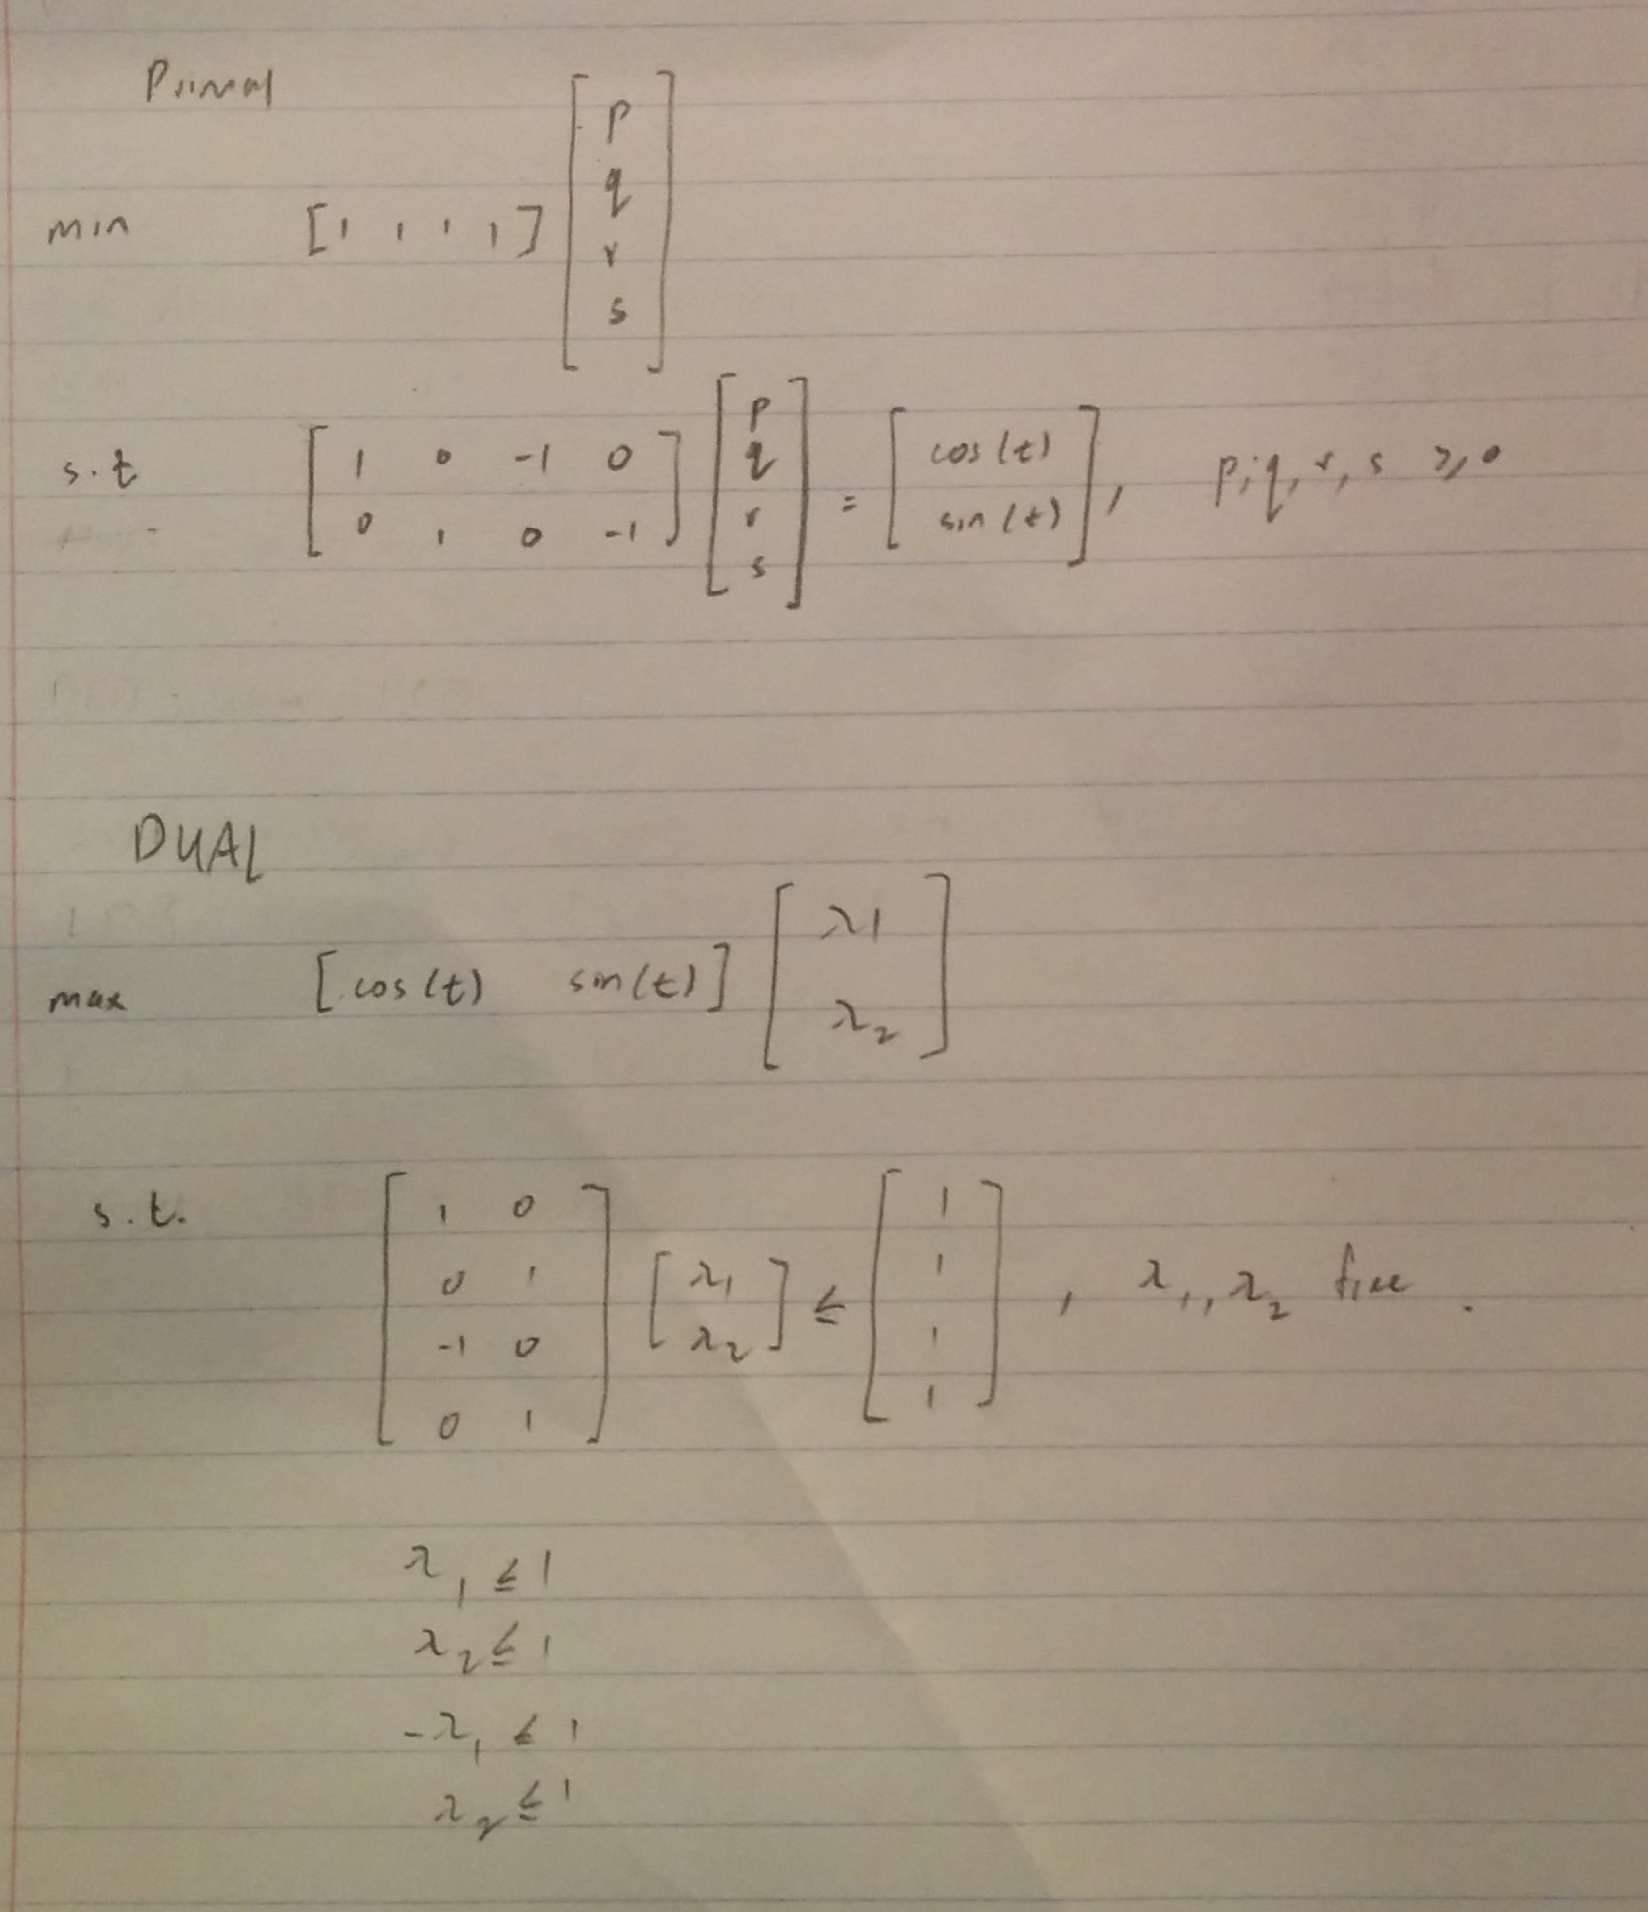 Primal
min [1 1 1 1] [p q r s]
s.t [1 0 -1 0 0 1 0 -1] [p q r s] = [cos(t) sin(t)], p,q,r,s ≥ 0
DUAL
max [cos(t) sin(t)] [λ1 λ2]
s.t. [1 0 0 1 -1 0 0 1] [λ1 λ2] ≤ [1 1 1 1], λ1, λ2 free.
λ1 ≤ 1
λ2 ≤ 1
-λ1 ≤ 1
λ2 ≤ 1